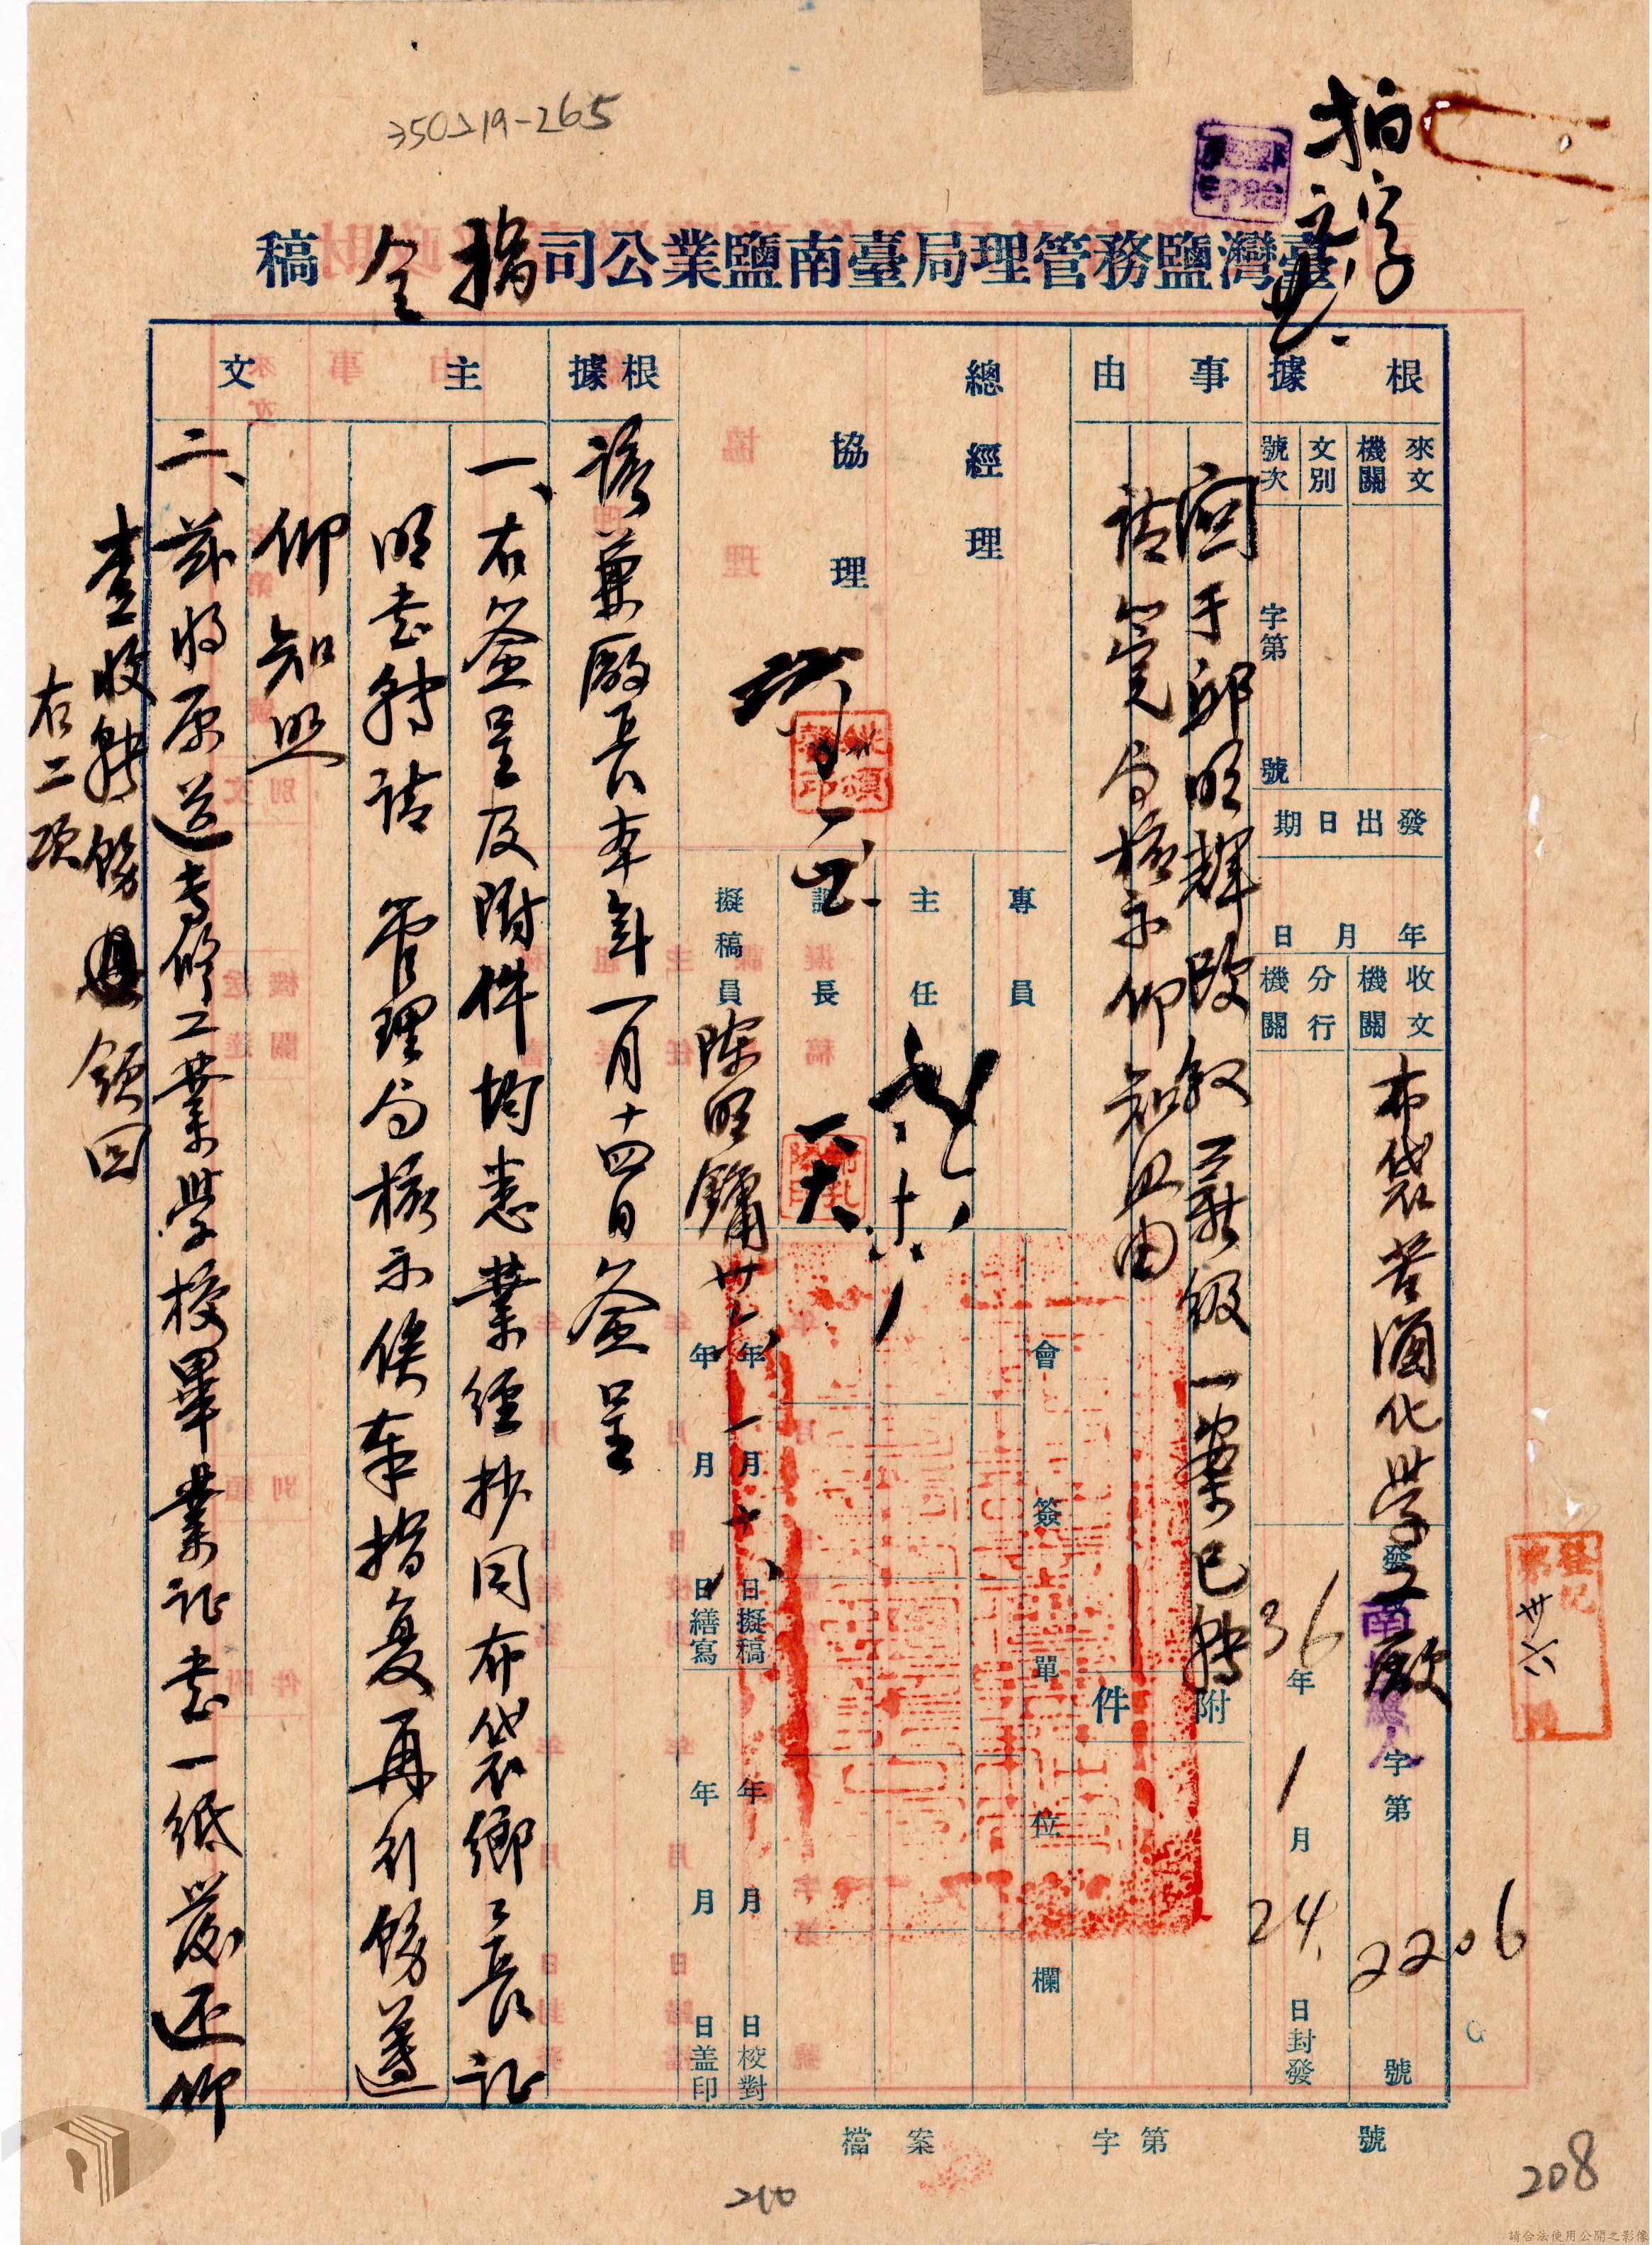 35019-265
臺灣鹽務管理局臺南鹽業公司指令稿
根據
來文機關
文別
號次
字第
號
發出日期
年月日
收文機關
布袋苦滷化學工廠
分行機關
發
字第
2206
號
36年1月24日封發
事由
關于邱明輝改敘薪級一案已轉
請管局核示仰知照由
附件
總經理
協理
專員
主任
課長
擬稿員
陳明鏞
卅六年一月十八日擬稿
年月日繕寫
年月日校對
年月日蓋印
會簽單位欄
根據
該兼廠長本年一月十四日簽呈
主文
一、右簽呈及附件均悉業經抄同布袋鄉長證
明書轉請管理局核示俟奉指復再行飭遵
仰知照
二、茲將原送專修工業學校畢業証書一紙發还仰
查收轉飭領回
右二項
登記
卅六
檔案
字第
號
210
208
請合法使用公開之影像